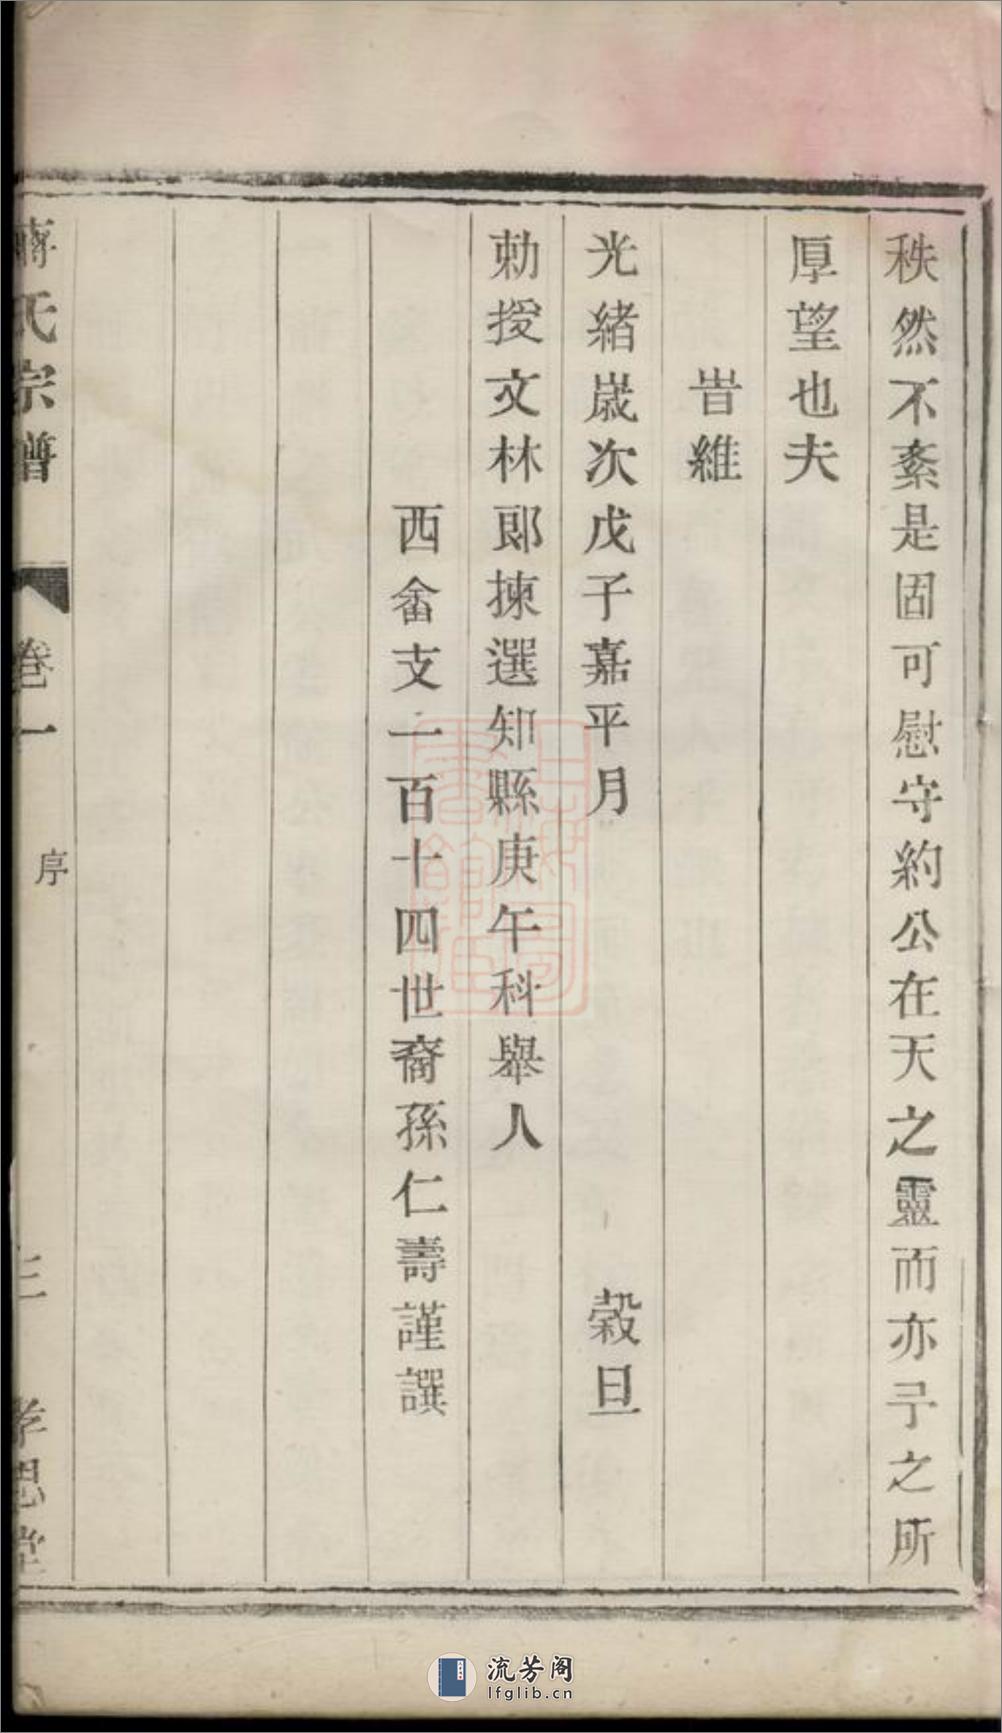 秩然不紊是固可慰守約公在天之靈而亦予之所
厚望也夫
旹維
光緒歲次戊子嘉平月 穀旦
勅授文林郎揀選知縣庚午科舉人
西畲支一百十四世裔孫仁壽謹譔
蔣氏宗譜 卷一 序 三 孝思堂
流芳阁
lfglib.cn